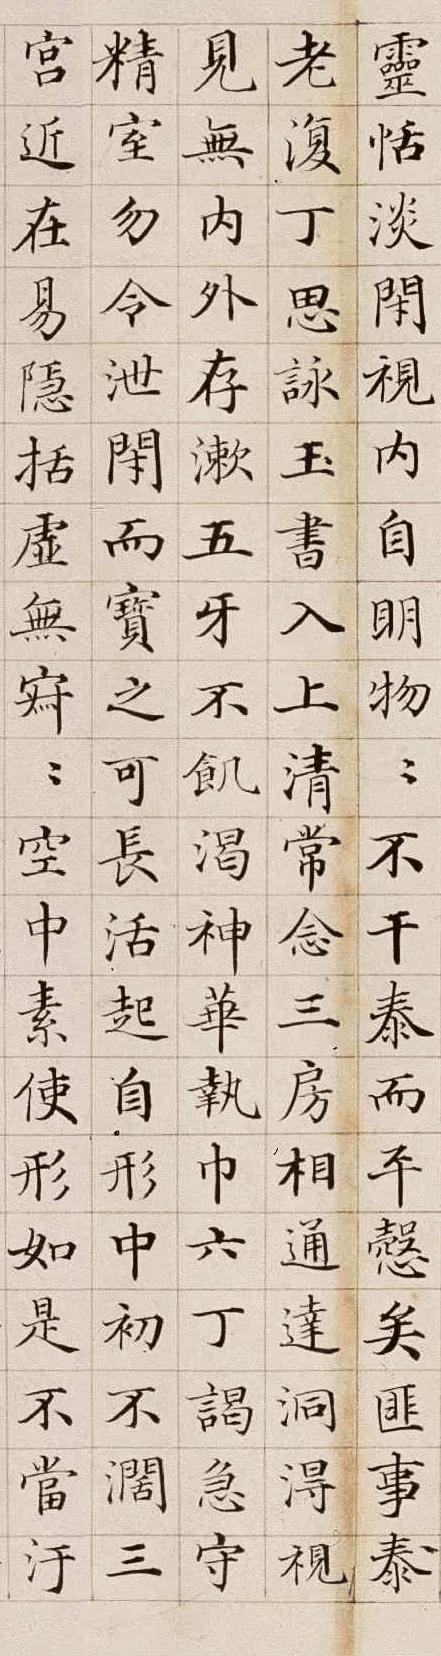 靈恬淡閑視内自明物〻不干泰而平慤矣匪事泰
老復丁思詠玉書入上清常念三房相通達洞淂視
見無内外存漱五牙不飢渴神華執巾六丁謁急守
精室勿令泄閑而寶之可長活起自形中初不濶三
宫近在易隱括虛無㝛〻空中素使形如是不當汙